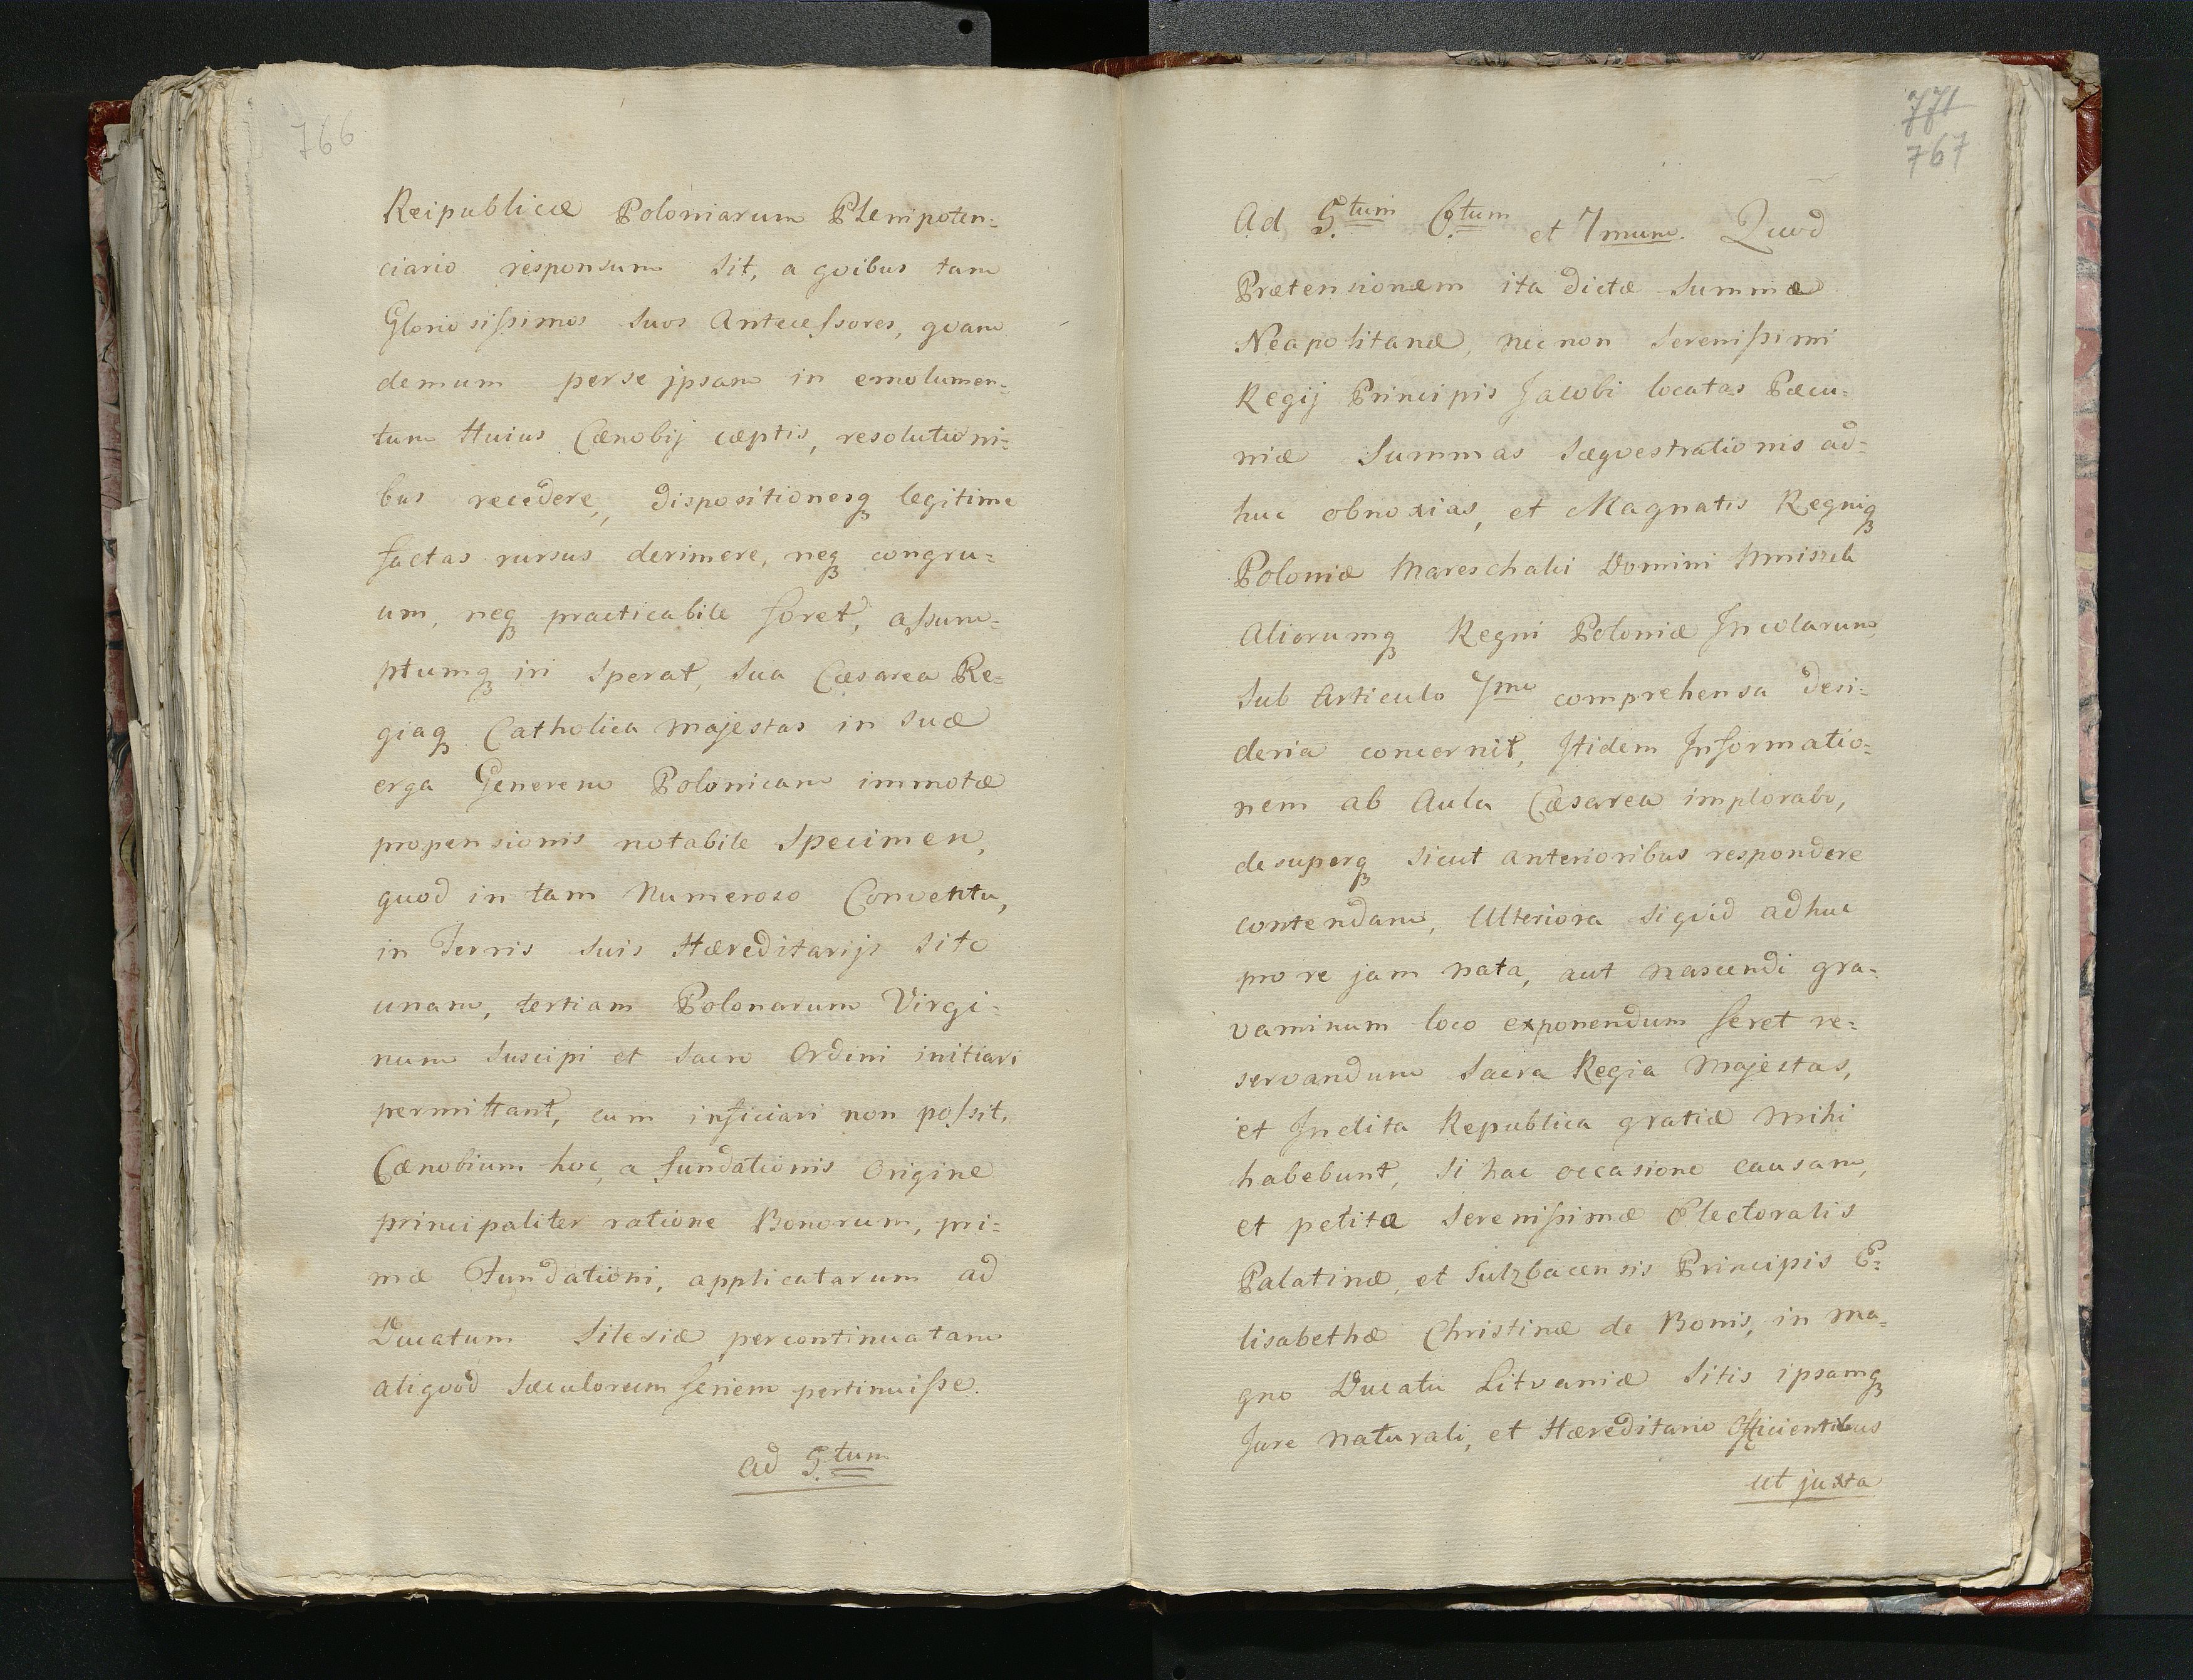 766
Reipublicæ Poloniarum Plenipoten=
ciario responsum sit, a qvibus tam
Gloriosissimos suos Antecessores, qvam
demum perse jpsam in emolumen=
tum Huius Cænobij cæptis, resolutioni=
bus recedere, dispositionesqꝫ legitime
factas rursus derimere, neqꝫ congru=
um, neqꝫ practicabile foret, assum=
ptumqꝫ iri sperat, sua Cæsarea Re=
giaqꝫ Catholica Majestas in suæ
erga Generem Polonicam immotæ
propensionis notabile specimen,
quod in tam Numeroso Conventu,
in Terris suis Hæreditarijs sito
unam, tertiam Polonarum Virgi=
num suscipi et sacro Ordini initiari
permittant, cum inficiari non possit,
Cænobium hoc, a fundationis Origine
principaliter ratione Bonorum, pri=
mæ Fundationi, applicatarum ad
Ducatum Silesiæ percontinuatam
aliqvod sæculorum seriem pertinuisse.
ad 5.tum
771
767
Ad 5.tum 6.tum et 7mum. Quod
Prætensionem ita dictæ summæ
Neapolitanæ, necnon serenissimi
Regij Principis Jacobi locatas Pæcu=
niæ Summas sæqvestrationis ad=
huc obnoxias, et Magnatis Regniqꝫ
Poloniæ Mareschalci Domini Mniszek
Aliorumqꝫ Regni Poloniæ Incolarum,
sub Articulo 7mo comprehensa desi=
deria concernit, Itidem Informatio=
nem ab Aula Cæsarea implorabo,
desuperqꝫ sicut anterioribus respondere
contendam, Ulteriora siqvid adhuc
pro re jam nata, aut nascendi gra=
vaminum loco exponendum seret re=
servandum Sacra Regia Majestas,
et Inclita Republica gratiæ mihi
habebunt, si hac occasione causam,
et petita serenissimæ Electoralis
Palatinæ, et Sulzbacensis Principis E=
lisabethæ Christinæ de Bonis, in Ma=
gno Ducatu Litvaniæ sitis ipsamqꝫ
Jure naturali, et Hæreditario Officientibus
ut juxta